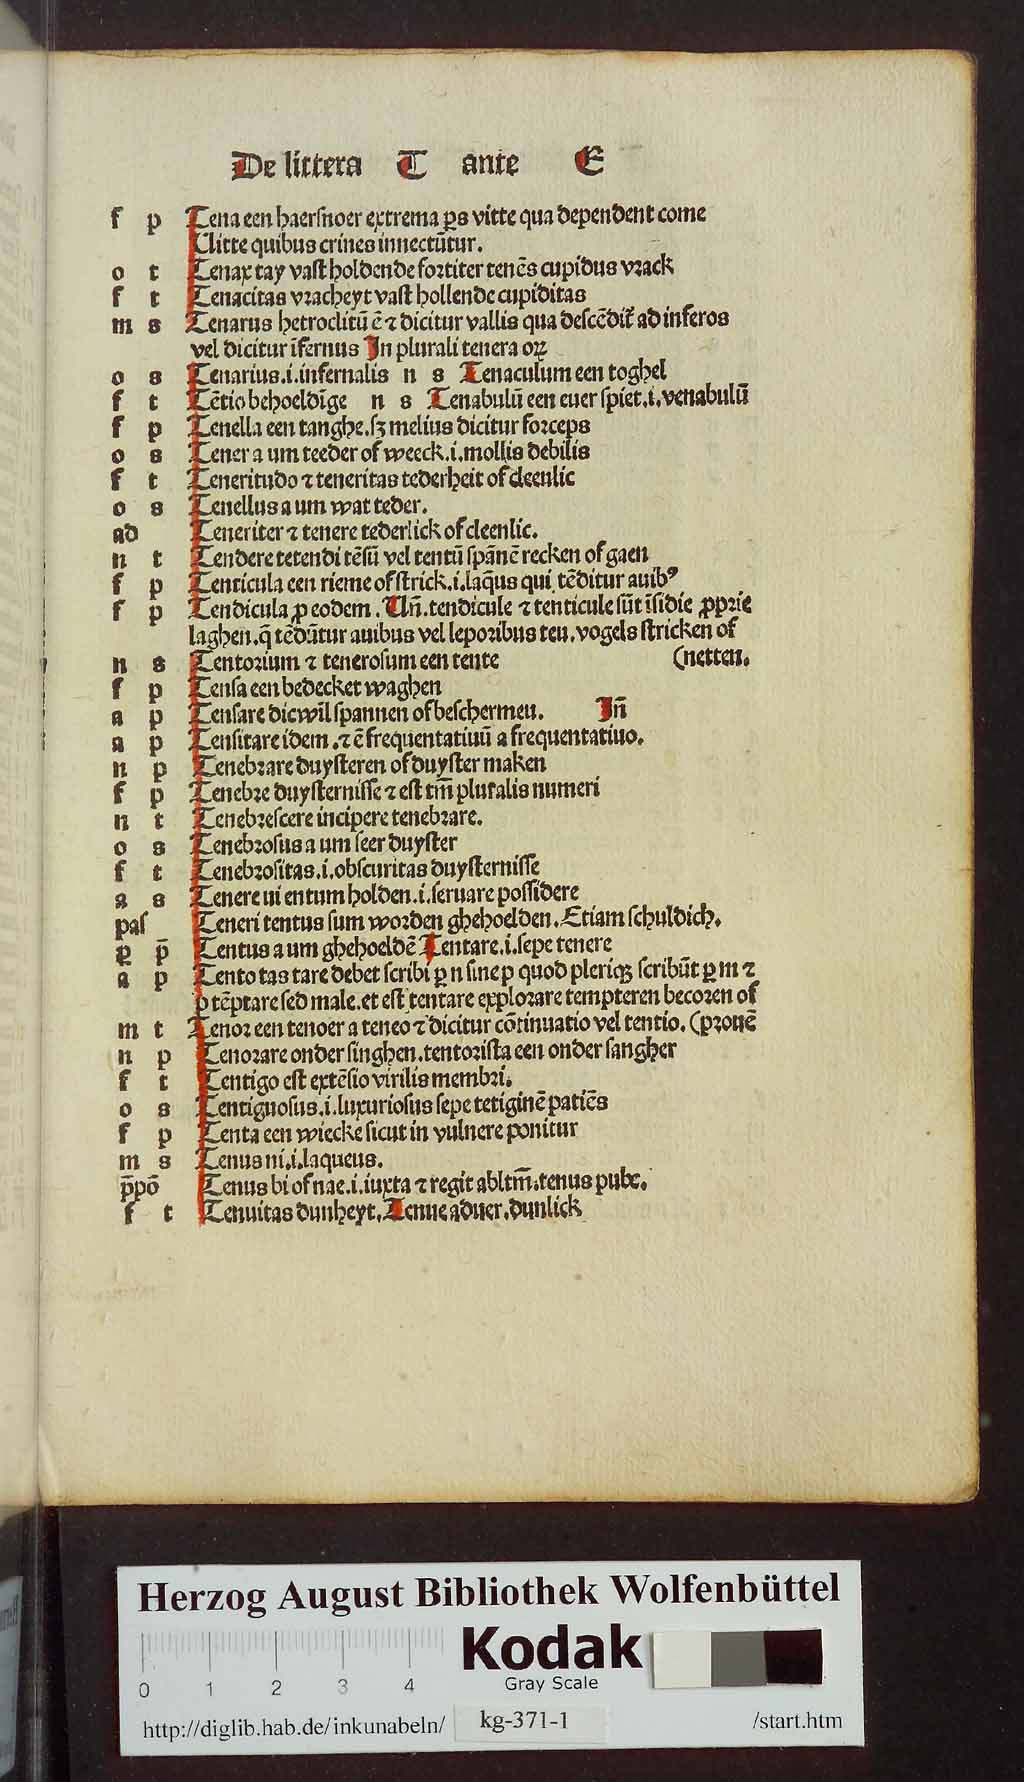 De littera T ante E
f p Tena een haersnoer extrema ꝑs vitte qua dependent come
Uitte quibus crines innectūtur.
o t Tenax tay vast holdende fortiter tenēs cupidus vrack
f t Tenacitas vracheyt vast hollende cupiditas
m s Tenarus hetroclitū ē ⁊ dicitur vallis qua descēdit᷑ ad inferos
vel dicitur īfernus In plurali tenera oꝝ
o s Tenarius.i.infernalis n s Tenaculum een toghel
f t Tētio behoeldīge n s Tenabulū een euer spiet.i.venabulū
f p Tenella een tanghe.sꝫ melius dicitur forceps
o s Tener a um teeder of weeck.i.mollis debilis
f t Teneritudo ⁊ teneritas tederheit of cleenlic
o s Tenellus a um wat teder.
ad Teneriter ⁊ tenere tederlick of cleenlic.
n t Tendere tetendi tēsū vel tentū spānē recken of gaen
f p Tenticula een rieme of strick.i.laq̄us qui tēditur auibꝰ
f p Tendicula ꝓ eodem. Un̄.tendicule ⁊ tenticule sūt īsidie ꝓprie
laghen.q̄ tēdūtur auibus vel leporibus teu.vogels stricken of
n s Tentorium ⁊ tenerosum een tente (netten.
f p Tensa een bedecket waghen
a p Tensare dicwīl spannen of beschermeu. In̄
a p Tensitare idem.⁊ ē frequentatiuū a frequentatiuo.
n p Tenebrare duysteren of duyster maken
f p Tenebre duysternisse ⁊ est tm̄ pluralis numeri
n t Tenebrescere incipere tenebrare.
o s Tenebrosus a um seer duyster
f t Tenebrositas.i.obscuritas duysternisse
a s Tenere ui entum holden.i.seruare possidere
pas Teneri tentus sum worden ghehoelden.Etiam schuldich.
ꝑ p̄ Tentus a um ghehoeldē Tentare.i.sepe tenere
a p Tento tas tare debet scribi ꝑ n sine p quod pleriqꝫ scribūt ꝑ m ⁊
p tēptare sed male.et est tentare explorare tempteren becoren of
m t Tenor een tenoer a teneo ⁊ dicitur cōtinuatio vel tentio. (prouē
n p Tenorare onder singhen.tentorista een onder sangher
f t Tentigo est extēsio virilis membri.
o s Tentiguosus.i.luxuriosus sepe tetiginē patiēs
f p Tenta een wiecke sicut in vulnere ponitur
m s Tenus ni.i.laqueus.
p̄pō Tenus bi of nae.i.iuxta ⁊ regit abltm̄.tenus pube.
f t Tenuitas dunheyt.Tenue aduer.dunlick
Herzog August Bibliothek Wolfenbüttel
Kodak
Gray Scale
0 1 2 3 4
http://diglib.hab.de/inkunabeln/ kg-371-1 /start.htm